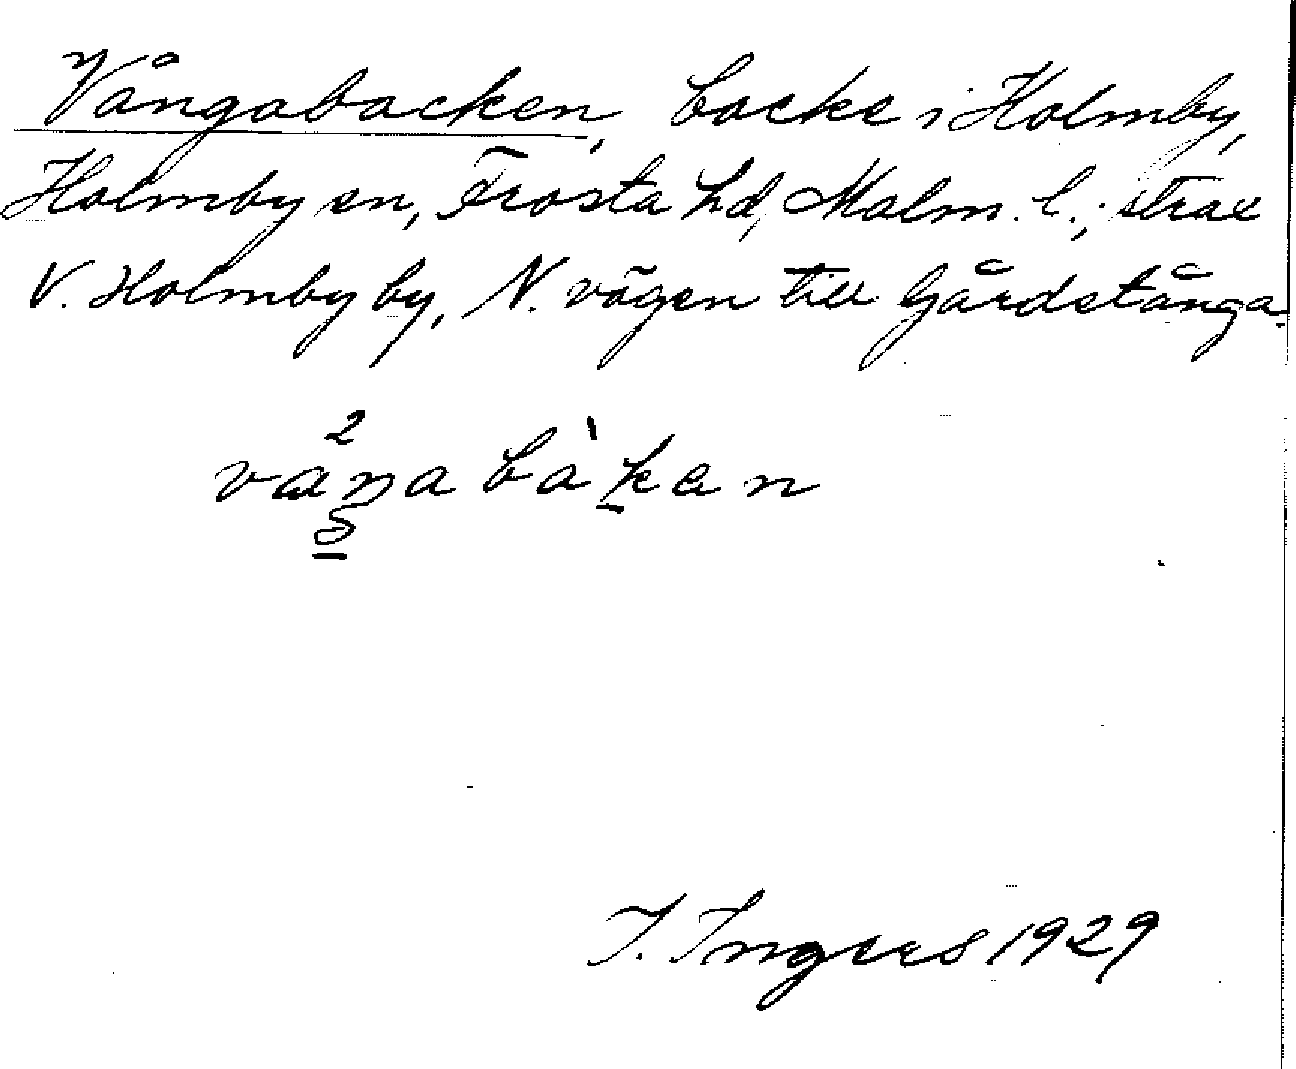 Vångabacken, backe i Holmby,
Holmby sn, Frosta hd, Malm. l.; strax
V. Holmby by, N. vägen till Gårdstånga.
I. Ingers 1929